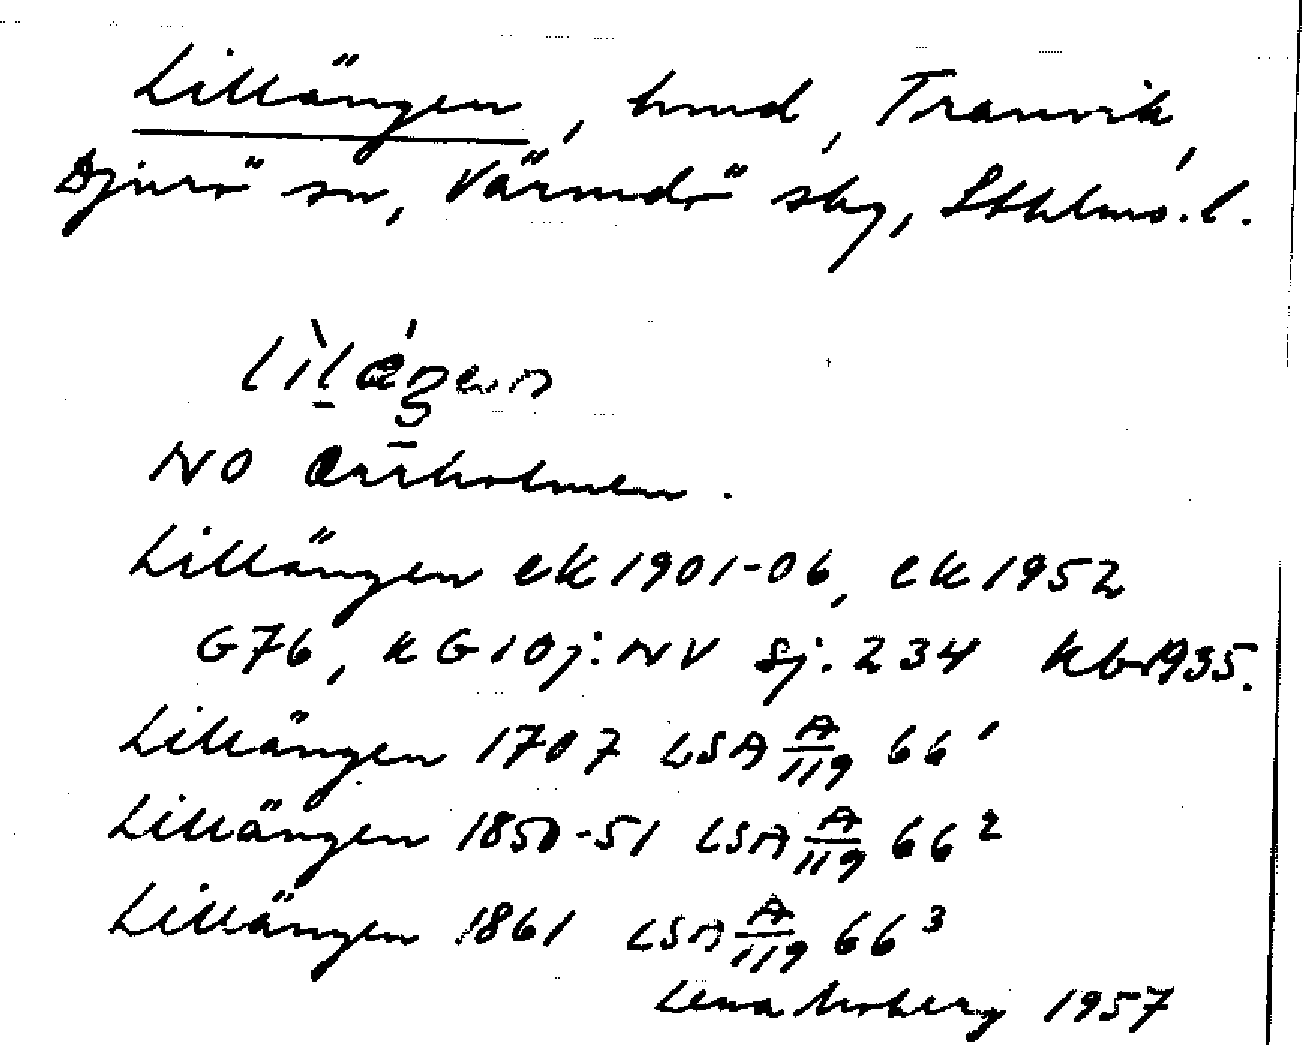 Lillängen, hmd, Tranvik,
Djurö sn, Värmdö skg, Sthlms. l.
lìlǽŋen
NO Ärrholmen.
Lillängen ek 1901-06, ek 1952
G76, KG 10j: NV Sj. 234 Kbr 1935.
Lillängen 1707 LSA A/119 66¹
Lillängen 1850-51 LSA A/119 66²
Lillängen 1861 LSA A/119 66³
Lena Moberg 1957